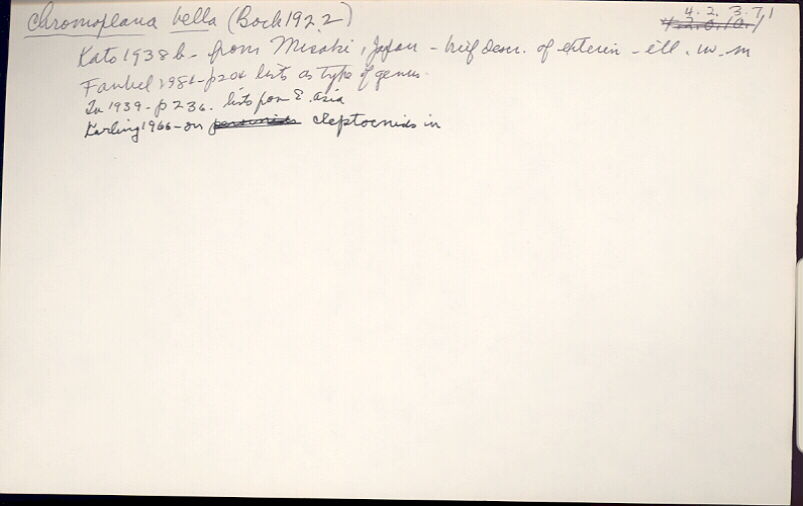 Chromoplana bella (Bock 1922)
4.2.3.7.1
4.2.0.10.1
Kato 1938b - from Misaki, Japan - brief descr. of extern - ill. w. m
Faubel 1984 - p 204 lists as type of genus.
Tu 1939 - p 236. lists from E. Asia
Karling 1966 - on cleptocnids in